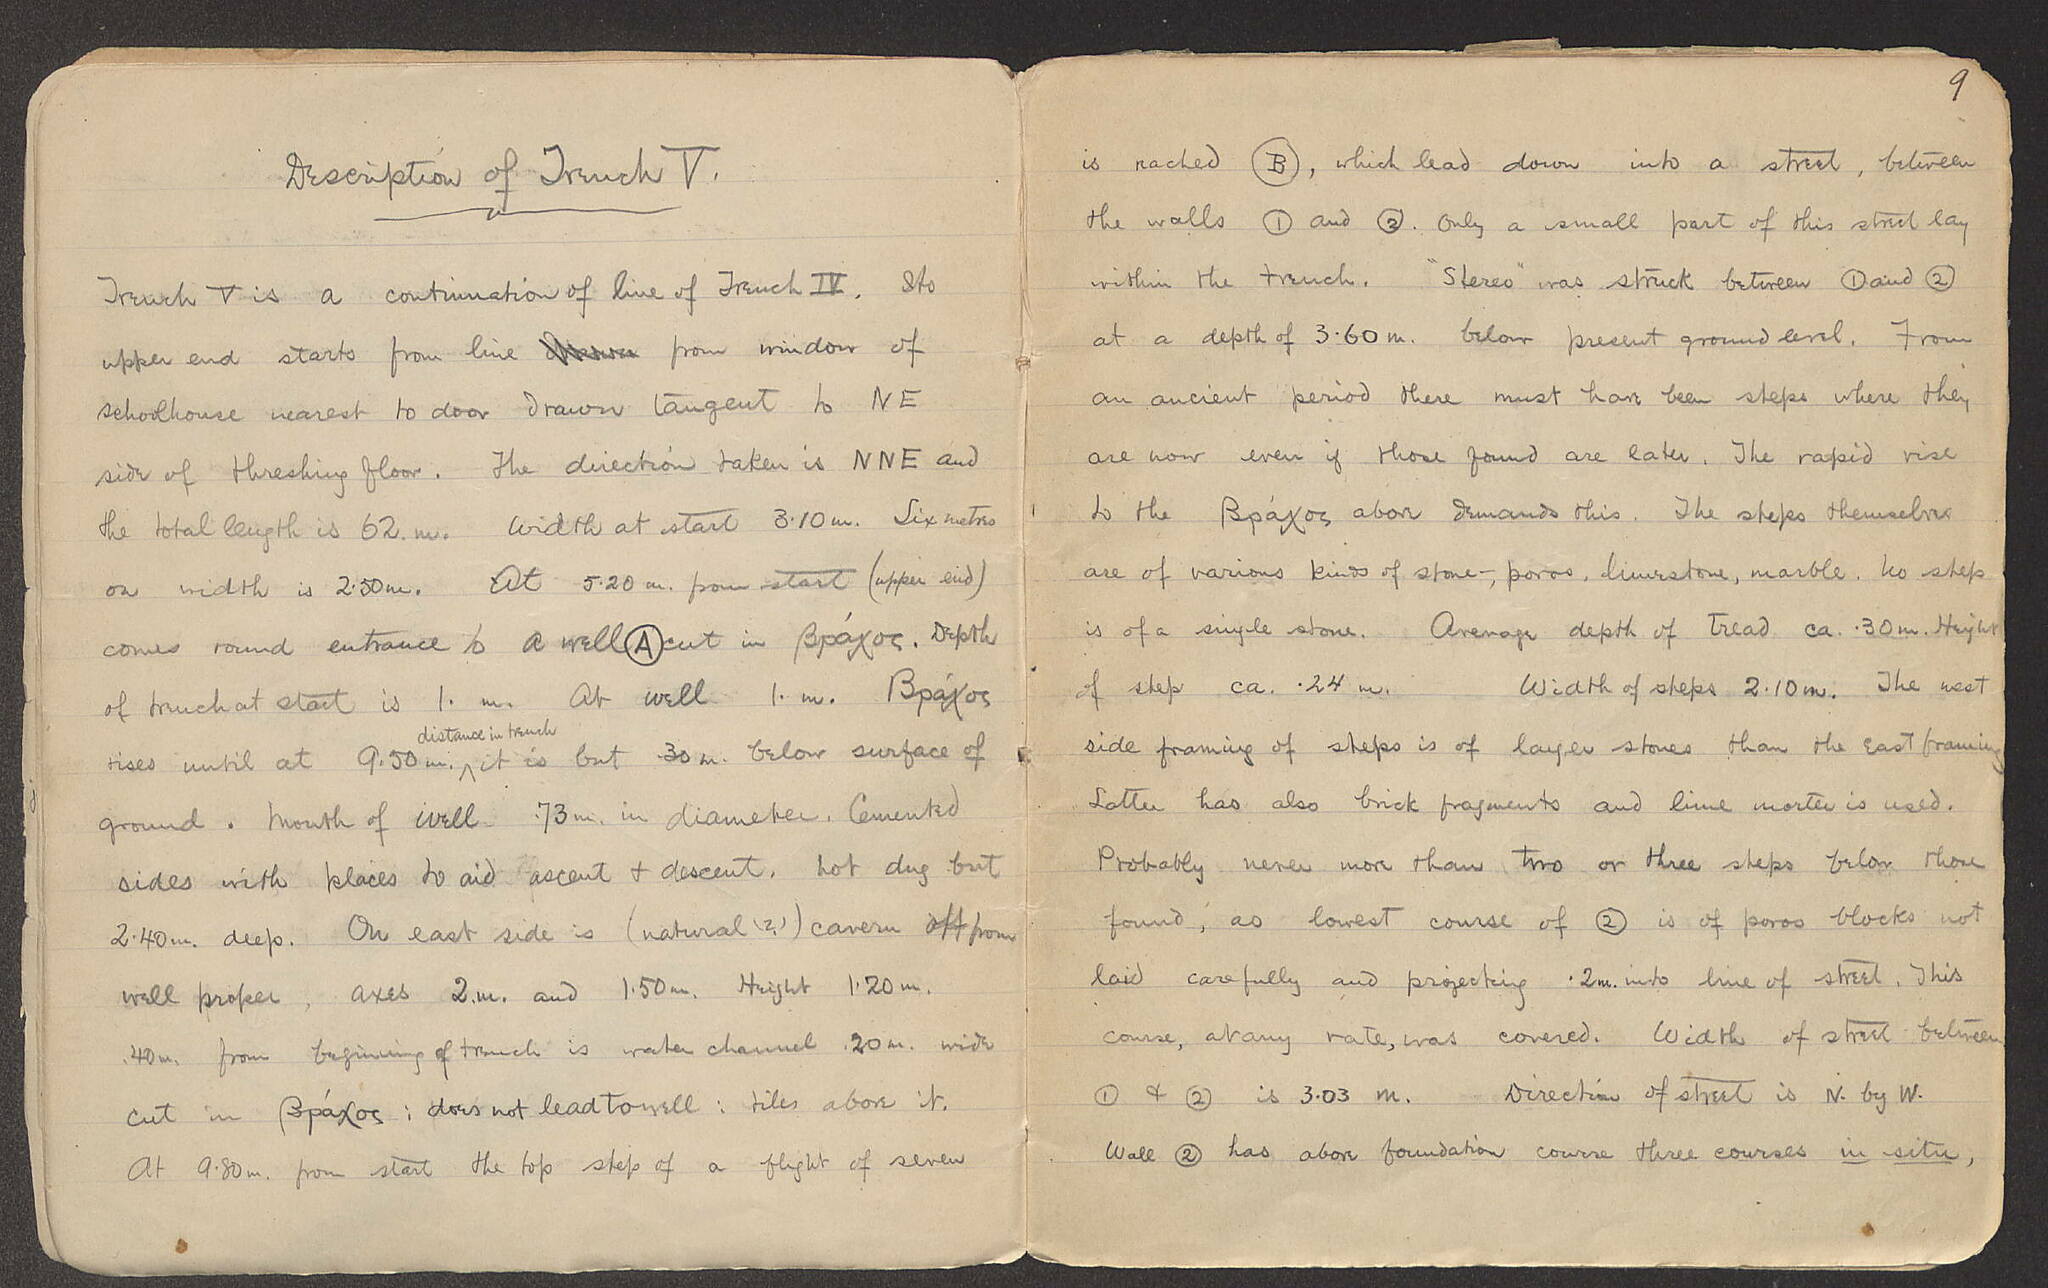 Description of Trench V.
Trench V is a continuation of line of Trench IV. Its
upper end starts from line drawn from window of
schoolhouse nearest to door drawn tangent to NE
side of threshing floor. The direction taken is NNE and
the total length is 62. m. Width at start 3.10 m. Six metres
on width is 2.50 m. At 5.20 m. from start (upper end)
comes round entrance to a well (A) cut in Βράχος. Depth
of trench at start is 1. m. At well 1. m. Βράχος
distance in trench
rises until at 9.50 m. ^ it is but .30 m. below surface of
ground. Mouth of well .73 m. in diameter. Cemented
sides with places to aid ascent & descent. Not dug but
2.40 m. deep. On east side is (natural (?)) cavern off from
well proper, axes 2. m. and 1.50 m. Height 1.20 m.
.40 m. from beginning of trench is water channel .20 m. wide
cut in Βράχος; does not lead to well; tiles above it.
At 9.80 m. from start the top step of a flight of seven
9
is reached (B), which lead down into a street, between
the walls ① and ②. Only a small part of this street lay
within the trench. "Stereo" was struck between ① and ②
at a depth of 3.60 m. below present ground level. From
an ancient period there must have been steps where they
are now even if those found are later. The rapid rise
to the Βράχος above demands this. The steps themselves
are of various kinds of stone-, poros, limestone, marble. No step
is of a single stone. Average depth of tread ca. .30 m. Height
of step ca. .24 m. Width of steps 2.10 m. The west
side framing of steps is of larger stones than the east framing
Latter has also brick fragments and lime morter is used.
Probably never more than two or three steps below those
found, as lowest course of ② is of poros blocks not
laid carefully and projecting .2 m. into line of street. This
course, at any rate, was covered. Width of street between
① & ② is 3.03 m. Direction of street is N. by W.
Wall ② has above foundation course three courses in situ,